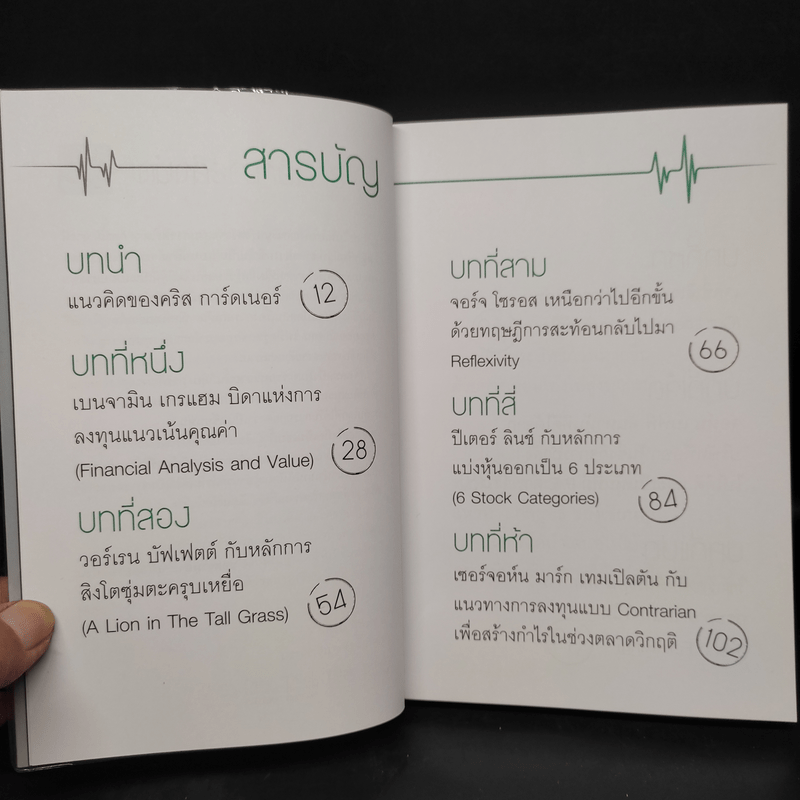 สารบัญ
บทนำ
แนวคิดของคริส การ์ดเนอร์ 12
บทที่หนึ่ง
เบนจามิน เกรแฮม บิดาแห่งการ
ลงทุนแนวเน้นคุณค่า
(Financial Analysis and Value) 28
บทที่สอง
วอร์เรน บัฟเฟตต์ กับหลักการ
สิงโตซุ่มตะครุบเหยื่อ
(A Lion in The Tall Grass) 54
บทที่สาม
จอร์จ โซรอส เหนือกว่าไปอีกขั้น
ด้วยทฤษฎีการสะท้อนกลับไปมา
Reflexivity 66
บทที่สี่
ปีเตอร์ ลินช์ กับหลักการ
แบ่งหุ้นออกเป็น 6 ประเภท
(6 Stock Categories) 84
บทที่ห้า
เซอร์จอห์น มาร์ก เทมเปิลตัน กับ
แนวทางการลงทุนแบบ Contrarian
เพื่อสร้างกำไรในช่วงตลาดวิกฤติ 102